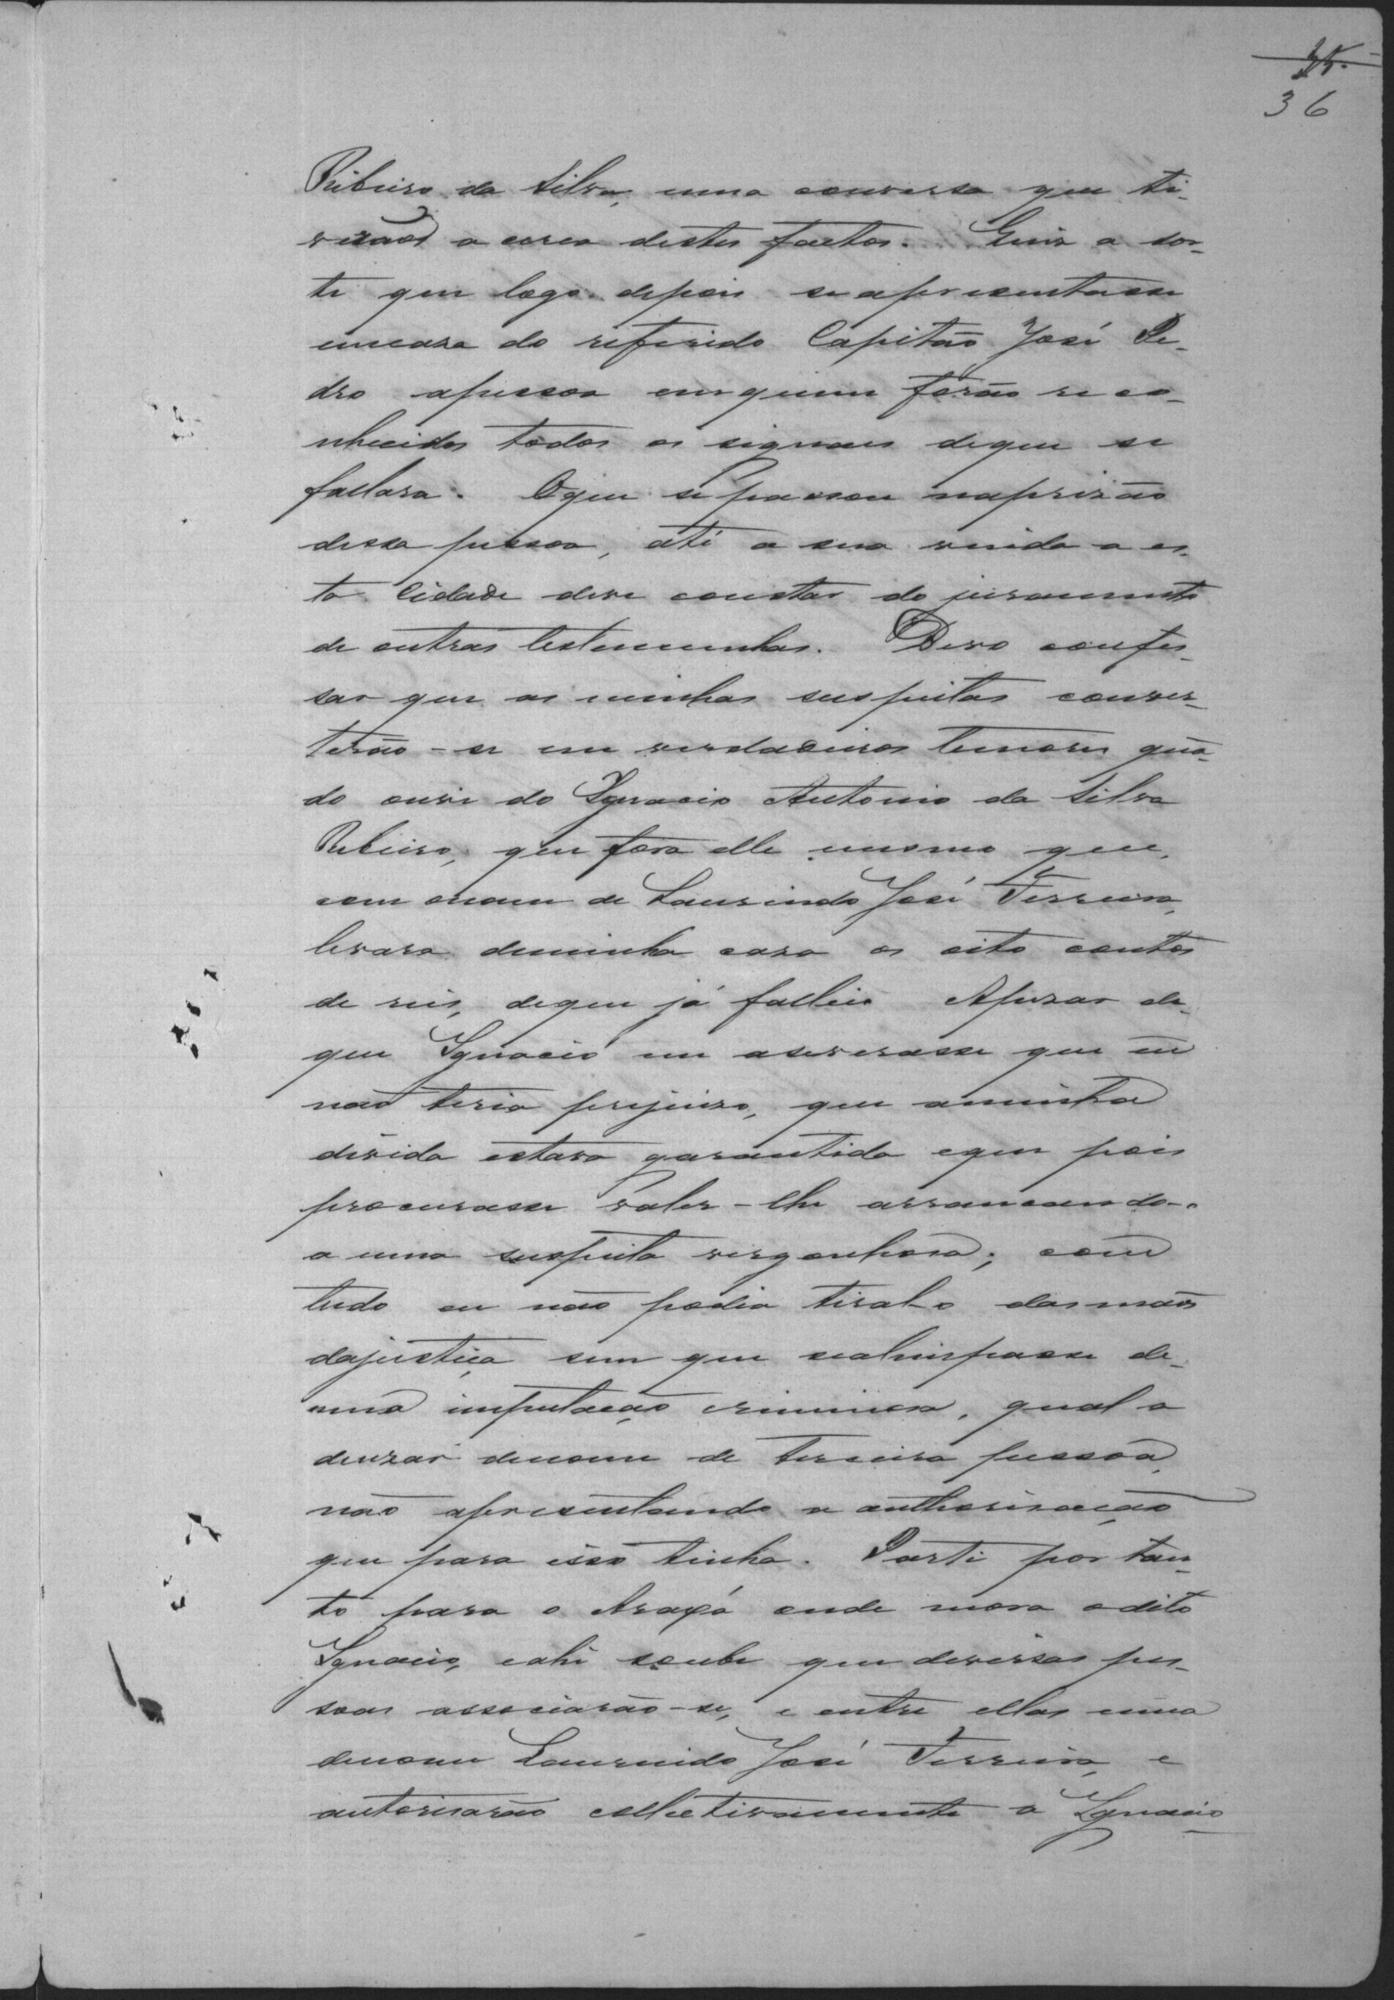 36
Ribeiro da Silva, uma conversa que ti-
verão a cerca destes factos. Quiz a sor-
te que logo depois se apresentasse
emcasa do referido Capitão José Pe-
dro apessoa emquem forão reco-
nhecidos todos os signaes deque se
fallara. Oque se passou naprizão
dessa pessoa, até a sua vinda a es-
ta Cidade deve constar do juramento
de outras testemunhas. Devo confes-
sar que as minhas suspeitas conver-
terão-se em verdadeiros temores quã-
do ouvi do Ignacio Antonio da Silva
Ribeiro, que fora elle mesmo que,
com onome de Laurindo José Ferreira,
levara deminha casa os oito contos
de reis, deque já fallei. Apezar de
que Ignacio me aseverasse que eu
não teria prejuizo, que aminha
divida estava garantida eque pois
procurasse valer-lhe arrancando-o
a uma suspeita vergonhosa; com
tudo eu não podia tiral-o dasmãos
dajustiça sem que sealimpasse de
uma imputação criminosa, qual a
deuzar denome de terceira pessoa,
não apresentando a authorisação
que para isso tinha. Parti por tan-
to para o Araxá onde mora odito
Ignacio, eahi soube que diversas pes-
soas associarão-se, e entre ellas uma
denome Laurindo José Ferreira, e
autorisarão collectivamente a Ignacio